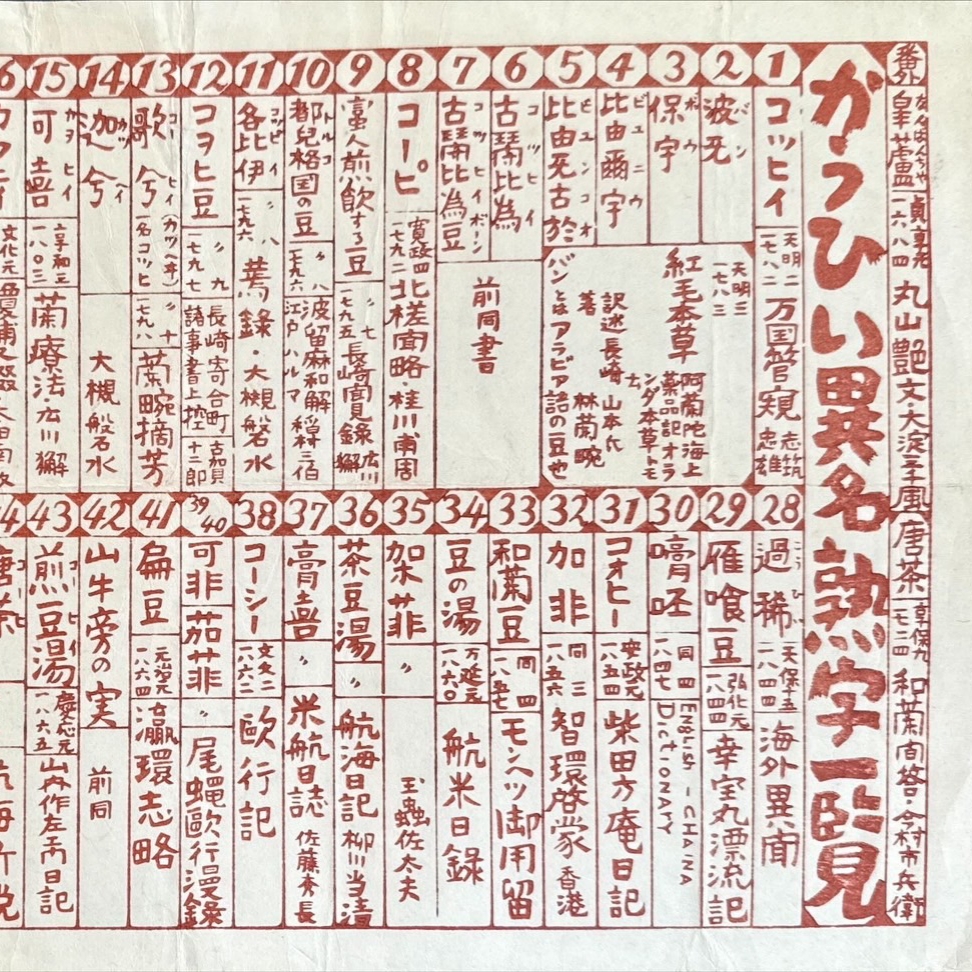 番外
皐蘆
貞享元
一六八四
丸山艶文
大淀三千風
唐茶
享保九
一七二四
和蘭問答・今村市兵衛
がうひい異名熟字一覧
1
コッヒイ
天明二
一七八二
万国管窺
志筑
忠雄
2
波无
バン
3
保宇
ボウ
4
比由爾宇
ビユニウ
5
比由无古於
ビユンコオ
天明三
一七八三
紅毛本草
阿蘭陀海上
薬品記オラ
ンダ本草トモ
云
訳述長崎 山本氏
著 林蘭畹
バンとはアラビア語の豆也
6
古闘比為
コツヒイ
7
古闘比為豆
コツヒイボーン
前同書
8
コーピ
寛政四
一七九二
北槎聞略・桂川甫周
9
蛮人煎飲する豆
〃 七
一七九五
長崎聞見録
広川
獬
10
都児格国の豆
トルコ
〃 八
一七九六
波留麻和解
江戸ハルマ
稲村三伯
11
各比伊
コッピイ
〃 八
一七九六
蔫録・大槻磐水
12
コヲヒ豆
〃 九
一七九七
長崎寄合町
諸事書上控
古賀
十二郎
13
歌兮
コーヒイ
(カツヘヰ)
一名コッヒ
〃 十
一七九八
蘭畹摘芳
14
迦兮
カッヘイ
大槻磐水
15
可喜
カヲヒイ
享和三
一八〇三
蘭療法・広川獬
文化元
28
過稀
天保十五
一八四四
海外異聞
29
雁喰豆
弘化元
一八四四
幸宝丸漂流記
30
嗝呸
同 四
一八四七
English-CHAINA
Dictionary
31
コオヒー
安政元
一八五四
柴田方庵日記
32
加非
同 三
一八五六
智環啓蒙
香港
33
和蘭豆
同 四
一八五七
モンヘツ御用留
34
豆の湯
万延元
一八六〇
航米日録
35
架菲
〃
玉蟲佐太夫
36
茶豆湯
〃
航海日記
柳川当清
37
膏喜
〃
米航日誌
佐藤秀長
38
コーシー
文久二
一八六二
欧行記
39
40
可非
茄菲
〃
尾蠅欧行漫録
41
扁豆
元治元
一八六四
瀛環志略
42
山牛蒡の実
前同
43
煎豆湯
コーヒイ
慶応元
一八六五
山内作左ヱ門日記
唐茶